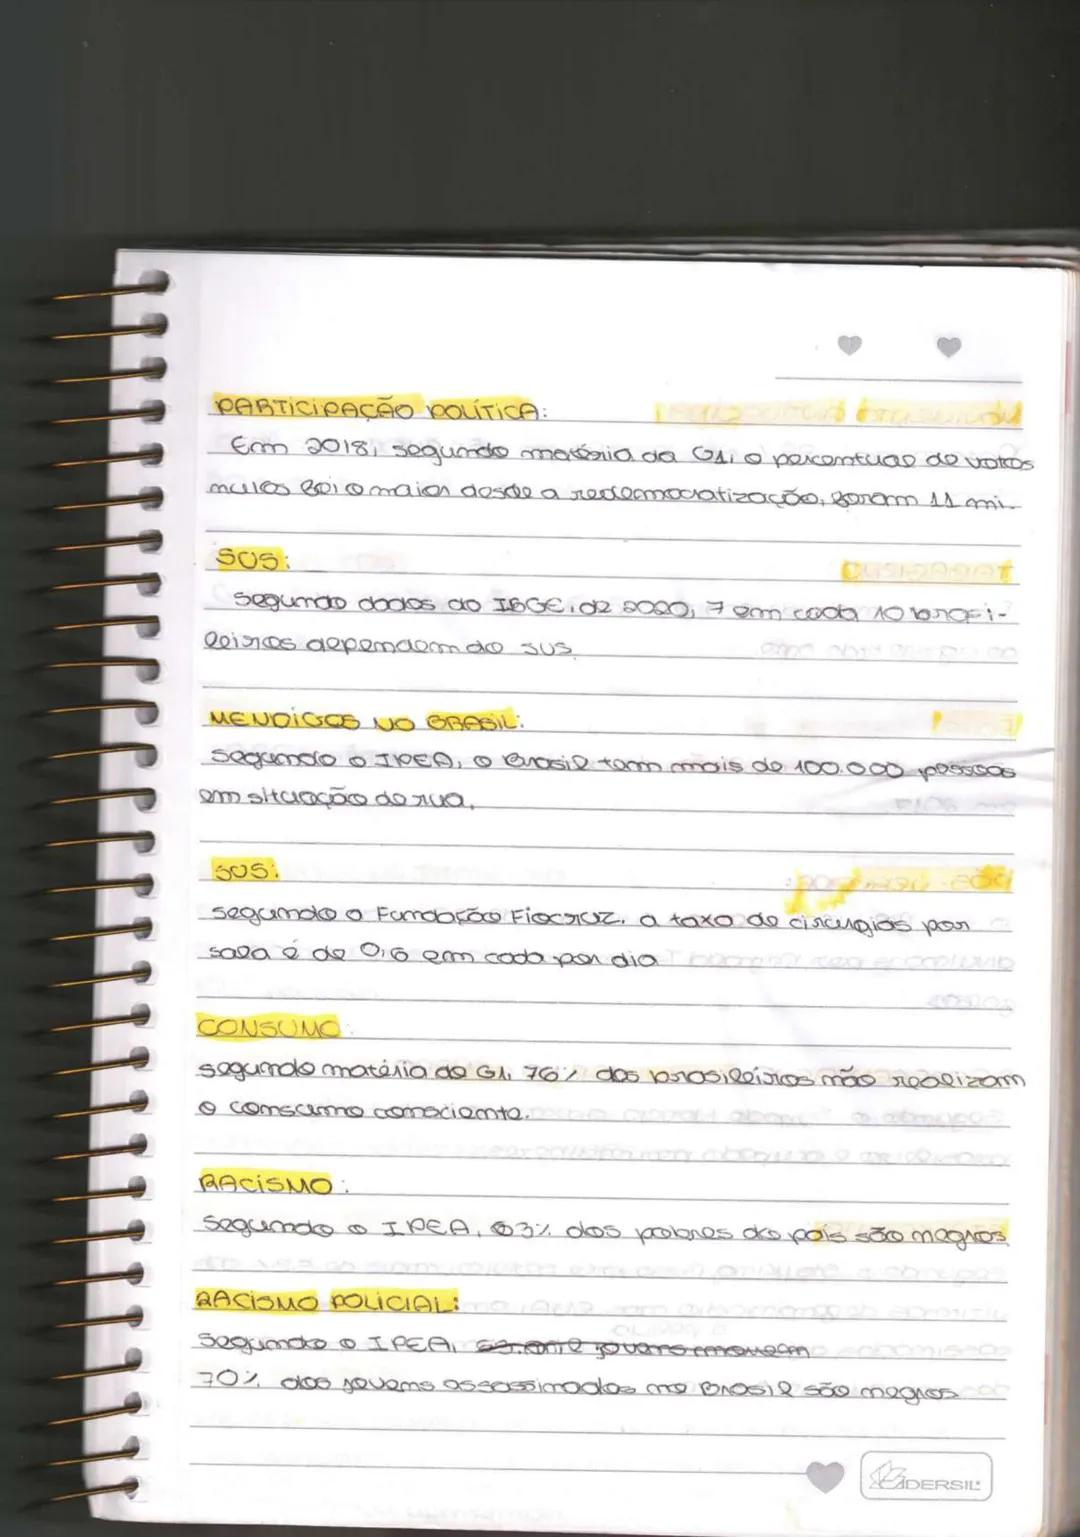 PARTICIPAÇÃO POLÍTICA:
Em 2018, segundo matéria da G1, o percentual de votos
nulos foi o maior desde a redemocratização, foram 11 mi.
SUS:
segundo dados do IBGE, de 2020, 7 em cada 10 brasi-
leiros dependem do SUS.
MENDIGOS NO BRASIL:
segundo o IPEA, o Brasil tem mais de 100.000 pessoas
em situação de rua.
SUS:
segundo a Fundação Fiocruz, a taxa de circurgias por
sala é de 0,6 em cada por dia
CONSUMO:
segundo matéria do G1, 76% dos brasileiros não realizam
o consumo consciente.
RACISMO:
segundo o IPEA, 63% dos pobres do país são negros
RACISMO POLICIAL:
segundo o IPEA,
70% dos jovens assassinados no Brasil são negros
CADERSIL